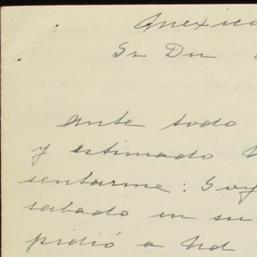 Mexico
Sr Dn
ante todo
y estimado
sentarme: Soy
sabado en su
pidió a Ud